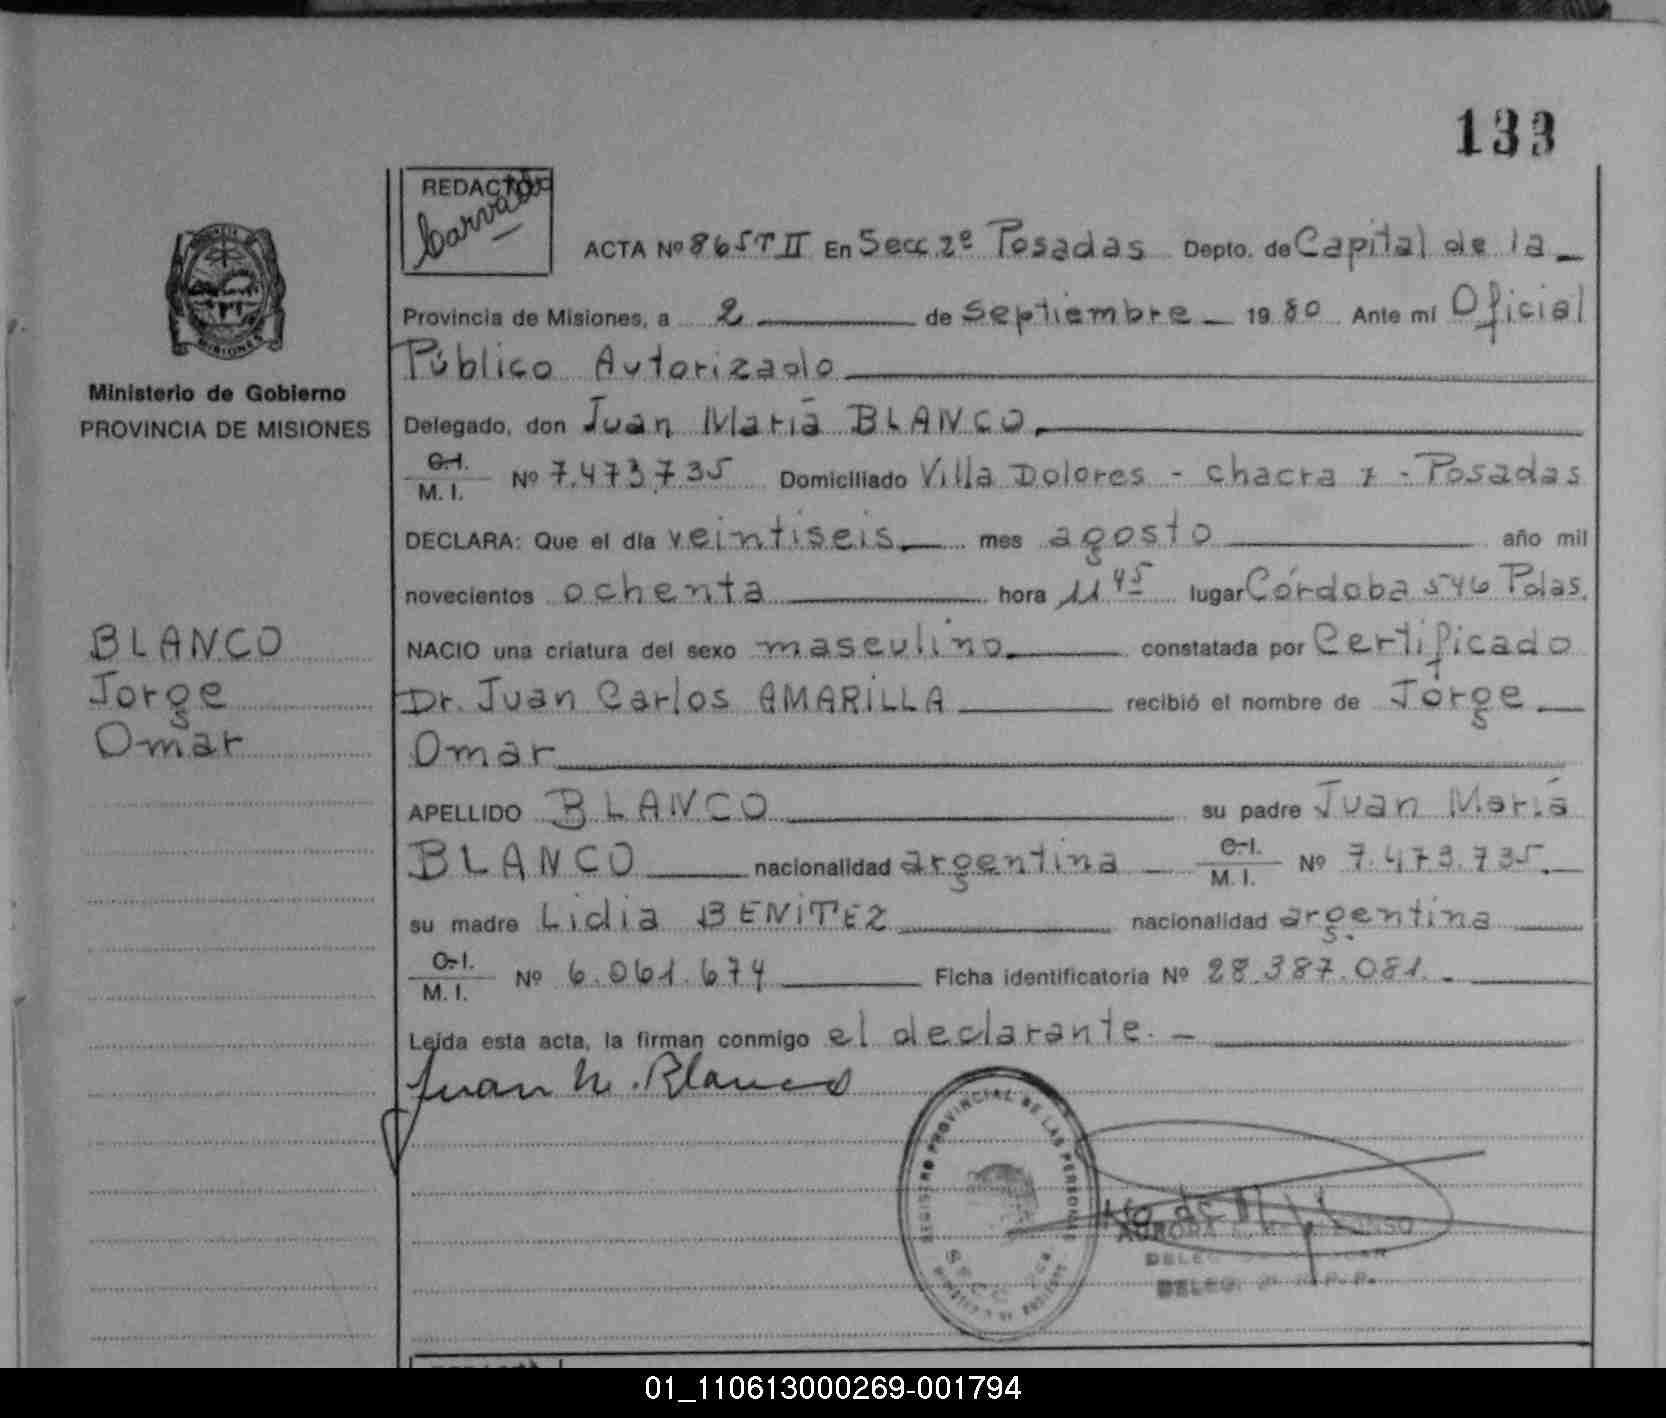 133
REDACTO
ACTA Nº 865 T II En Secc. 2º Posadas Depto. de Capital de la
Provincia de Misiones, a 2 de septiembre 19 80 Ante mi Oficial
Público Autorizado
MISIONES
Ministerio de Gobierno
PROVINCIA DE MISIONES
Delegado, don Juan María BLANCO.
C.I.
M. I. Nº 7.473.735 Domiciliado Villa Dolores - chacra 7 - Posadas
DECLARA: Que el día veintiseis mes agosto año mil
novecientos ochenta hora 11 45 lugar Córdoba 546 Pdas.
BLANCO
Jorge
Omar
NACIO una criatura del sexo masculino constatada por Certificado
Dr. Juan Carlos AMARILLA recibió el nombre de Jorge
Omar
APELLIDO BLANCO su padre Juan María
BLANCO nacionalidad argentina C.I.
M. I. Nº 7.473.735.
su madre Lidia BENITEZ nacionalidad argentina
C.I.
M. I. Nº 6.061.674 Ficha identificatoria Nº 28.387.081.
Leída esta acta, la firman conmigo el declarante. -
Juan M. Blanco
REGISTRO PROVINCIAL DE LAS PERSONAS
01_110613000269-001794